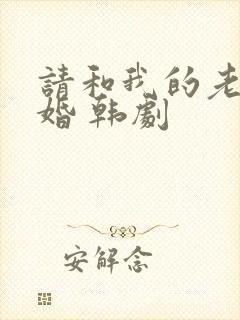 請和我的老
婚 韩劇
安解念